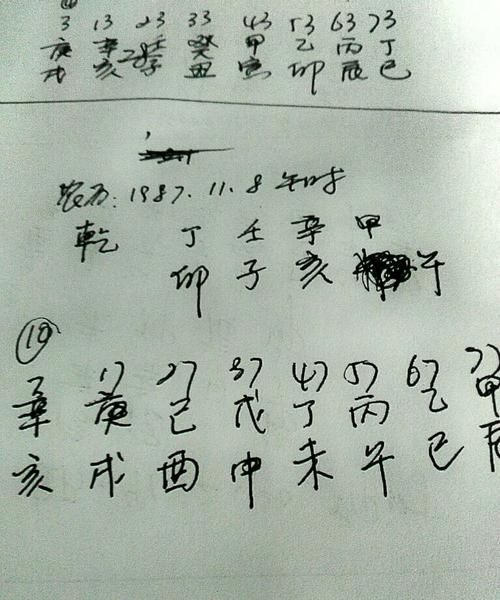 3 13 23 33 43 53 63 73
庚 辛 壬 癸 甲 乙 丙 丁
戌 亥 子 丑 寅 卯 辰 巳
农历: 1987. 11. 8 午时
乾 丁 壬 辛 甲
卯 子 亥 午
10
7 17 27 37 47 57 67 77
辛 庚 己 戊 丁 丙 乙 甲
亥 戌 酉 申 未 午 巳 辰